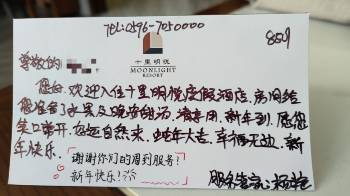 TEL:0596-7050000
8501
十里明悦
MOONLIGHT
RESORT
尊敬的
您好，欢迎入住十里明悦度假酒店，房间给
您准备了水果及晚安甜汤，请享用，新年到，愿您
笑口常开，好运自然来，蛇年大吉，幸福无边，新
年快乐！
谢谢你们的周到服务！
新年快乐！
服务管家：杨艳